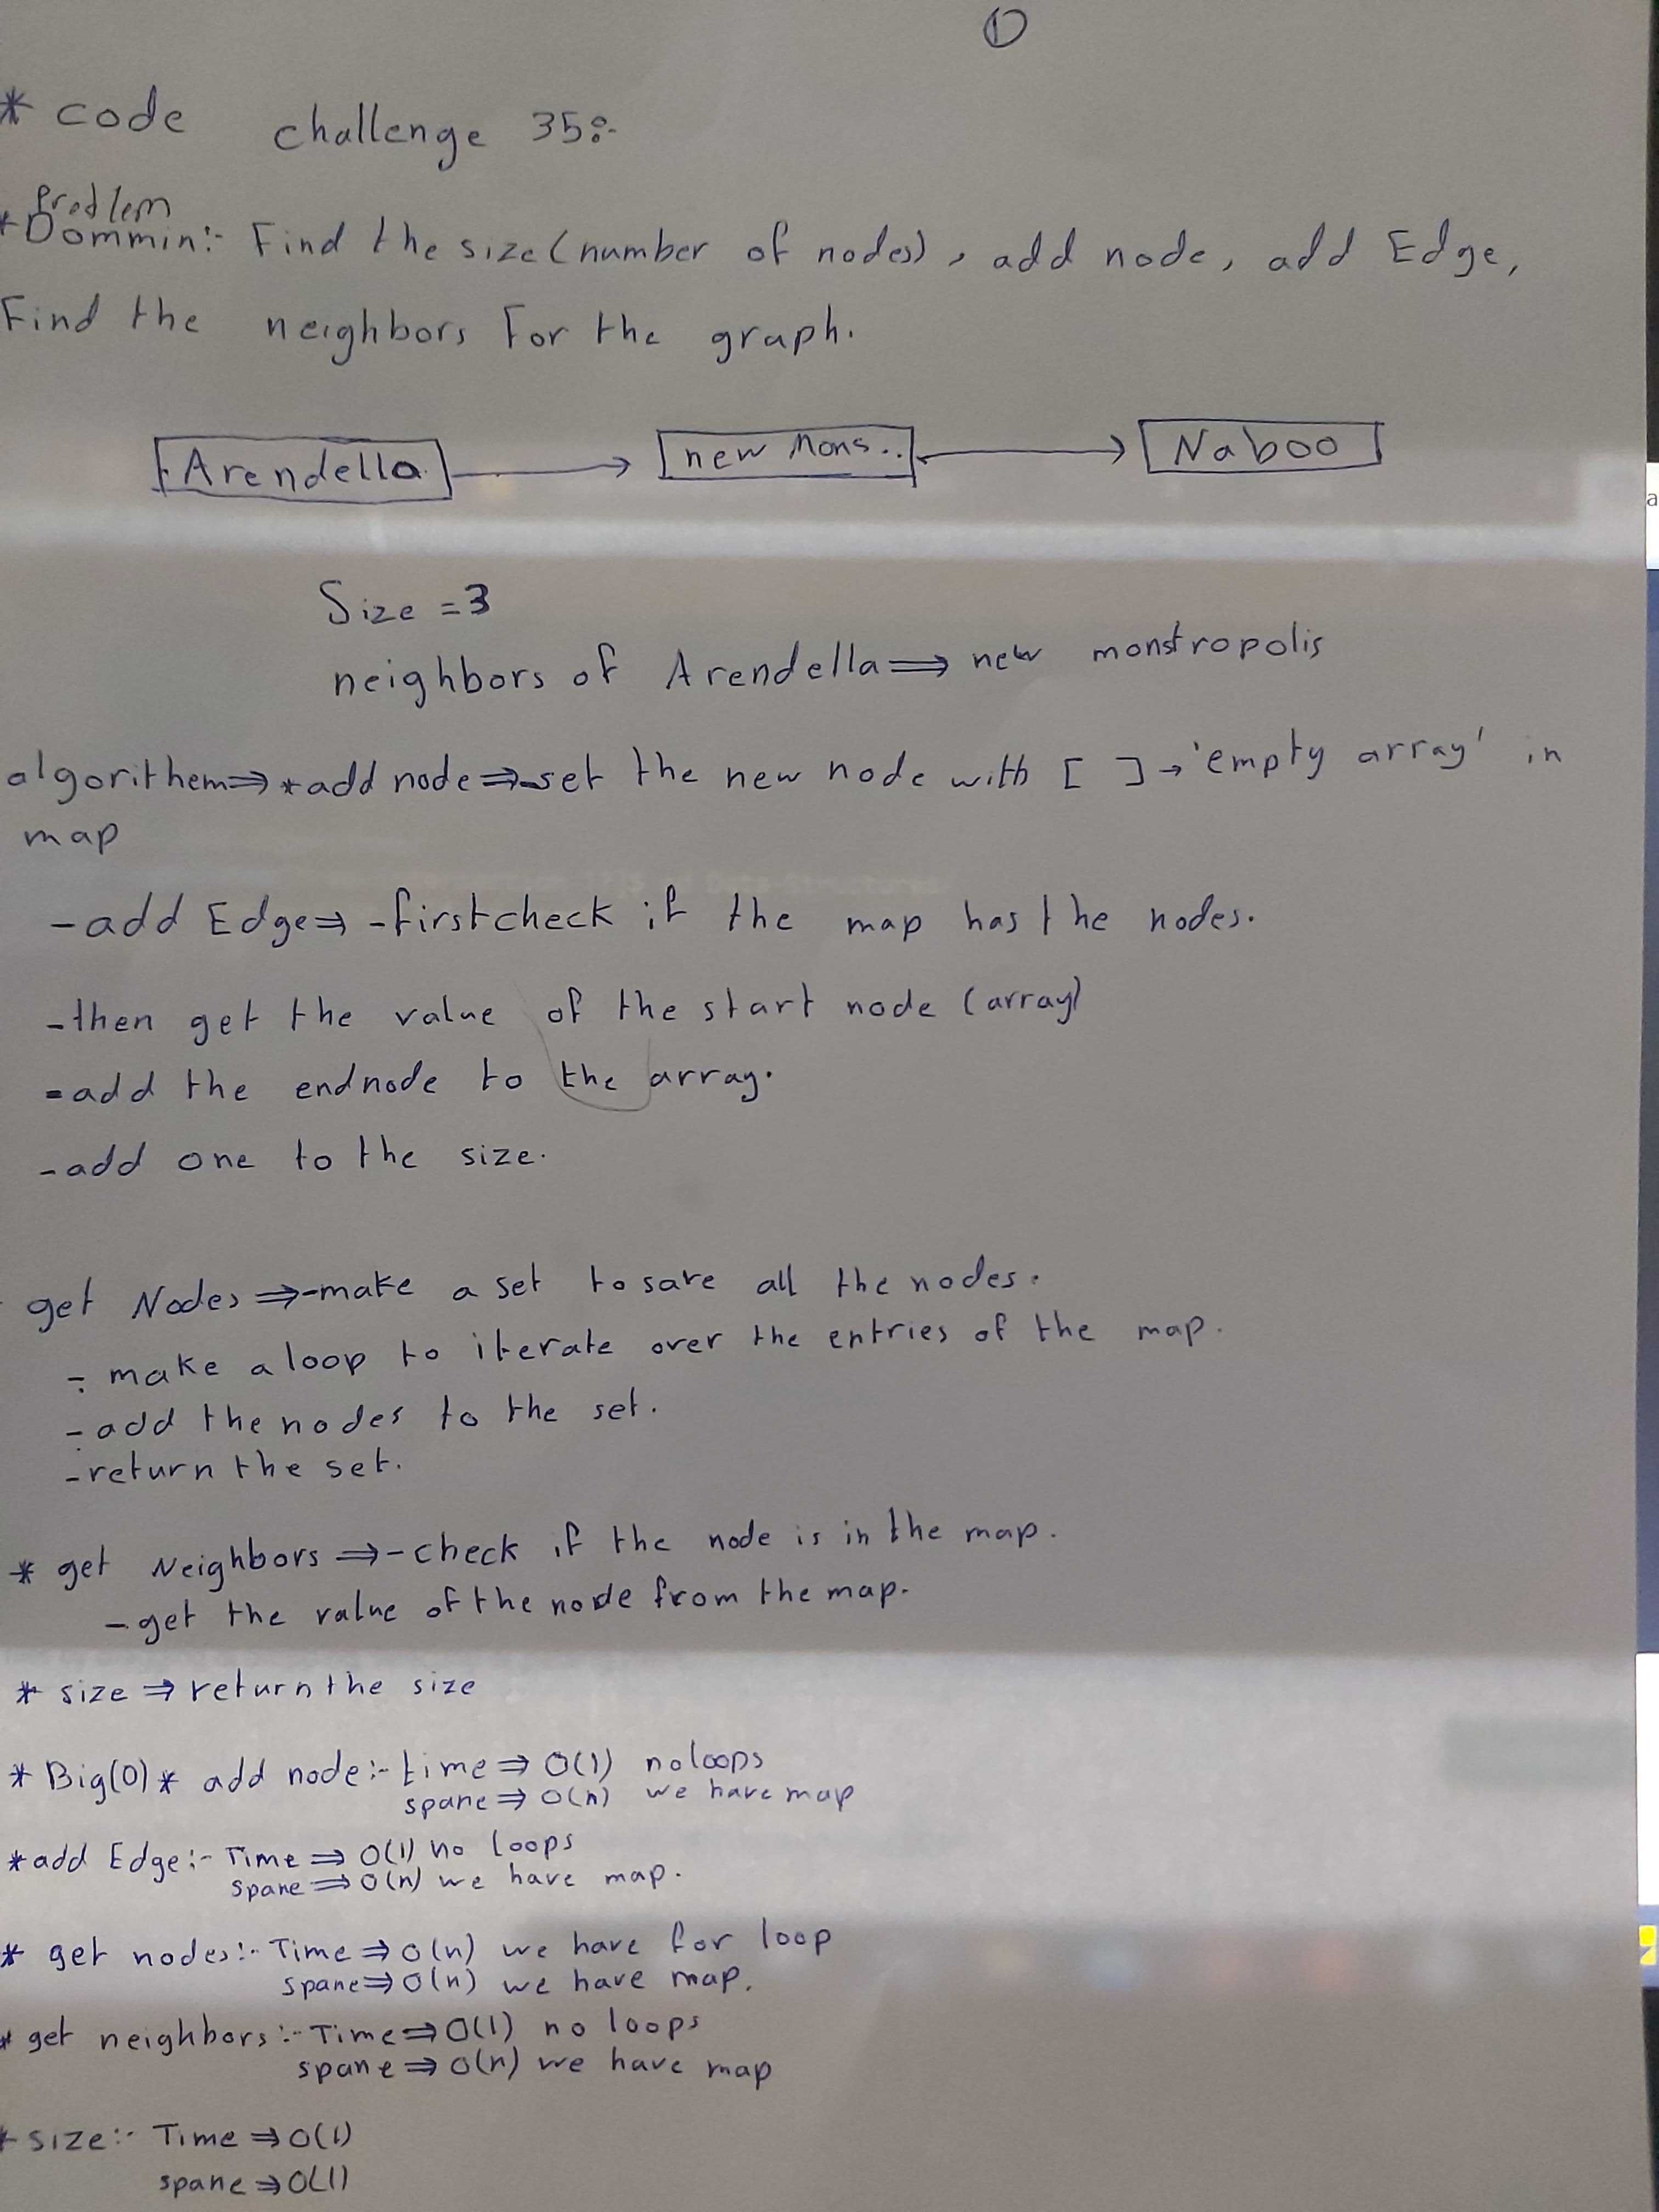 ①
* code challenge 35:-
problem
*Dommin:- Find the size (number of nodes), add node, add Edge,
Find the neighbors for the graph.
Arendella → new Mons.. ↔ Naboo
Size = 3
neighbors of Arendella ⇒ new monstropolis
algorithem ⇒ * add node ⇒ -set the new node with [ ] → 'empty array' in
map
- add Edge ⇒ - first check if the map has the nodes.
- then get the value of the start node (array)
- add the endnode to the array.
- add one to the size.
- get Nodes ⇒ - make a set to save all the nodes.
- make a loop to iterate over the entries of the map.
- add the nodes to the set.
- return the set.
* get Neighbors ⇒ - check if the node is in the map.
- get the value of the node from the map.
* size ⇒ return the size
* Big(O) * add node:- time ⇒ O(1) no loops
spane ⇒ O(n) we have map
* add Edge:- Time ⇒ O(1) no loops
spane ⇒ O(n) we have map.
* get nodes:- Time ⇒ O(n) we have for loop
spane ⇒ O(n) we have map.
* get neighbors:- Time ⇒ O(1) no loops
spane ⇒ O(n) we have map
* size:- Time ⇒ O(1)
spane ⇒ O(1)